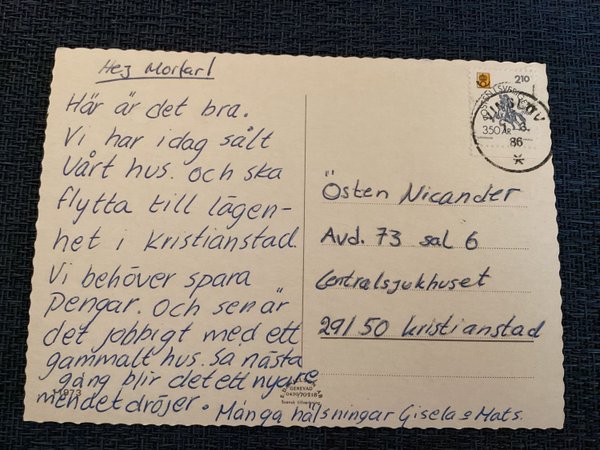 Hej Morfar!
Här är det bra.
Vi har idag sålt
Vårt hus. och ska
flytta till lägen-
het i Kristianstad.
Vi behöver spara
Pengar. Och sen är
det jobbigt med ett
gammalt hus. Så nästa
gång blir det ett nyare
men det dröjer. Många hälsningar Gisela o Mats.
210
350 ÅR
VINSLÖV
86
Östen Nicander
Avd. 73 sal 6
Centralsjukhuset
291 50 Kristianstad
11973
GENEVAD
Svensk tillverkning